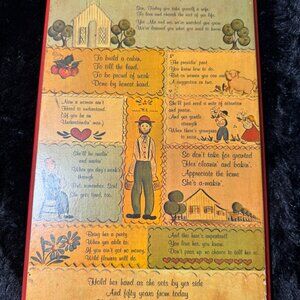 Son, Today you take yourself a wife
To love and cherish the rest of yer life
Yer Ma and me, we're wonderin' yer grown
We've learned you what you need to know
To build a cabin,
To till the land,
To be proud of work
Done by honest hand.
The practical part,
You know how to do
But as women you can use
A suggestion or two.
Now a woman ain't
Hard to understand
(If you be an
Understandin' man.)
She'll just need a mite of attention
and praise.
And yer gentle strength
When there's youngsters
to raise.
She'll be nailin'
and mavin'
When your day's work's
through
But, remember, Son!
She gets tired, too.
So don't take for granted
Her cleanin' and bakin'.
Appreciate the home
She's a-makin'
Bring her a pretty
When yer able to;
(If you ain't got no money,
Wild flowers will do.)
And this here's important!
You love her, you know.
Don't pass up no chance to tell her so
Hold her hand as she sets by yer side
And fifty years from today